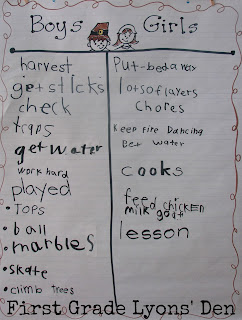 Boys Girls
harvest
get sticks
check
traps
get water
work hard
played
• Tops
• ball
• marbles
• skate
• climb trees
Put-bed away
lot sof layers
Chores
Keep Fire Dancing
Get water
cooks
feed chicken
milk goat
lesson
First Grade Lyons' Den